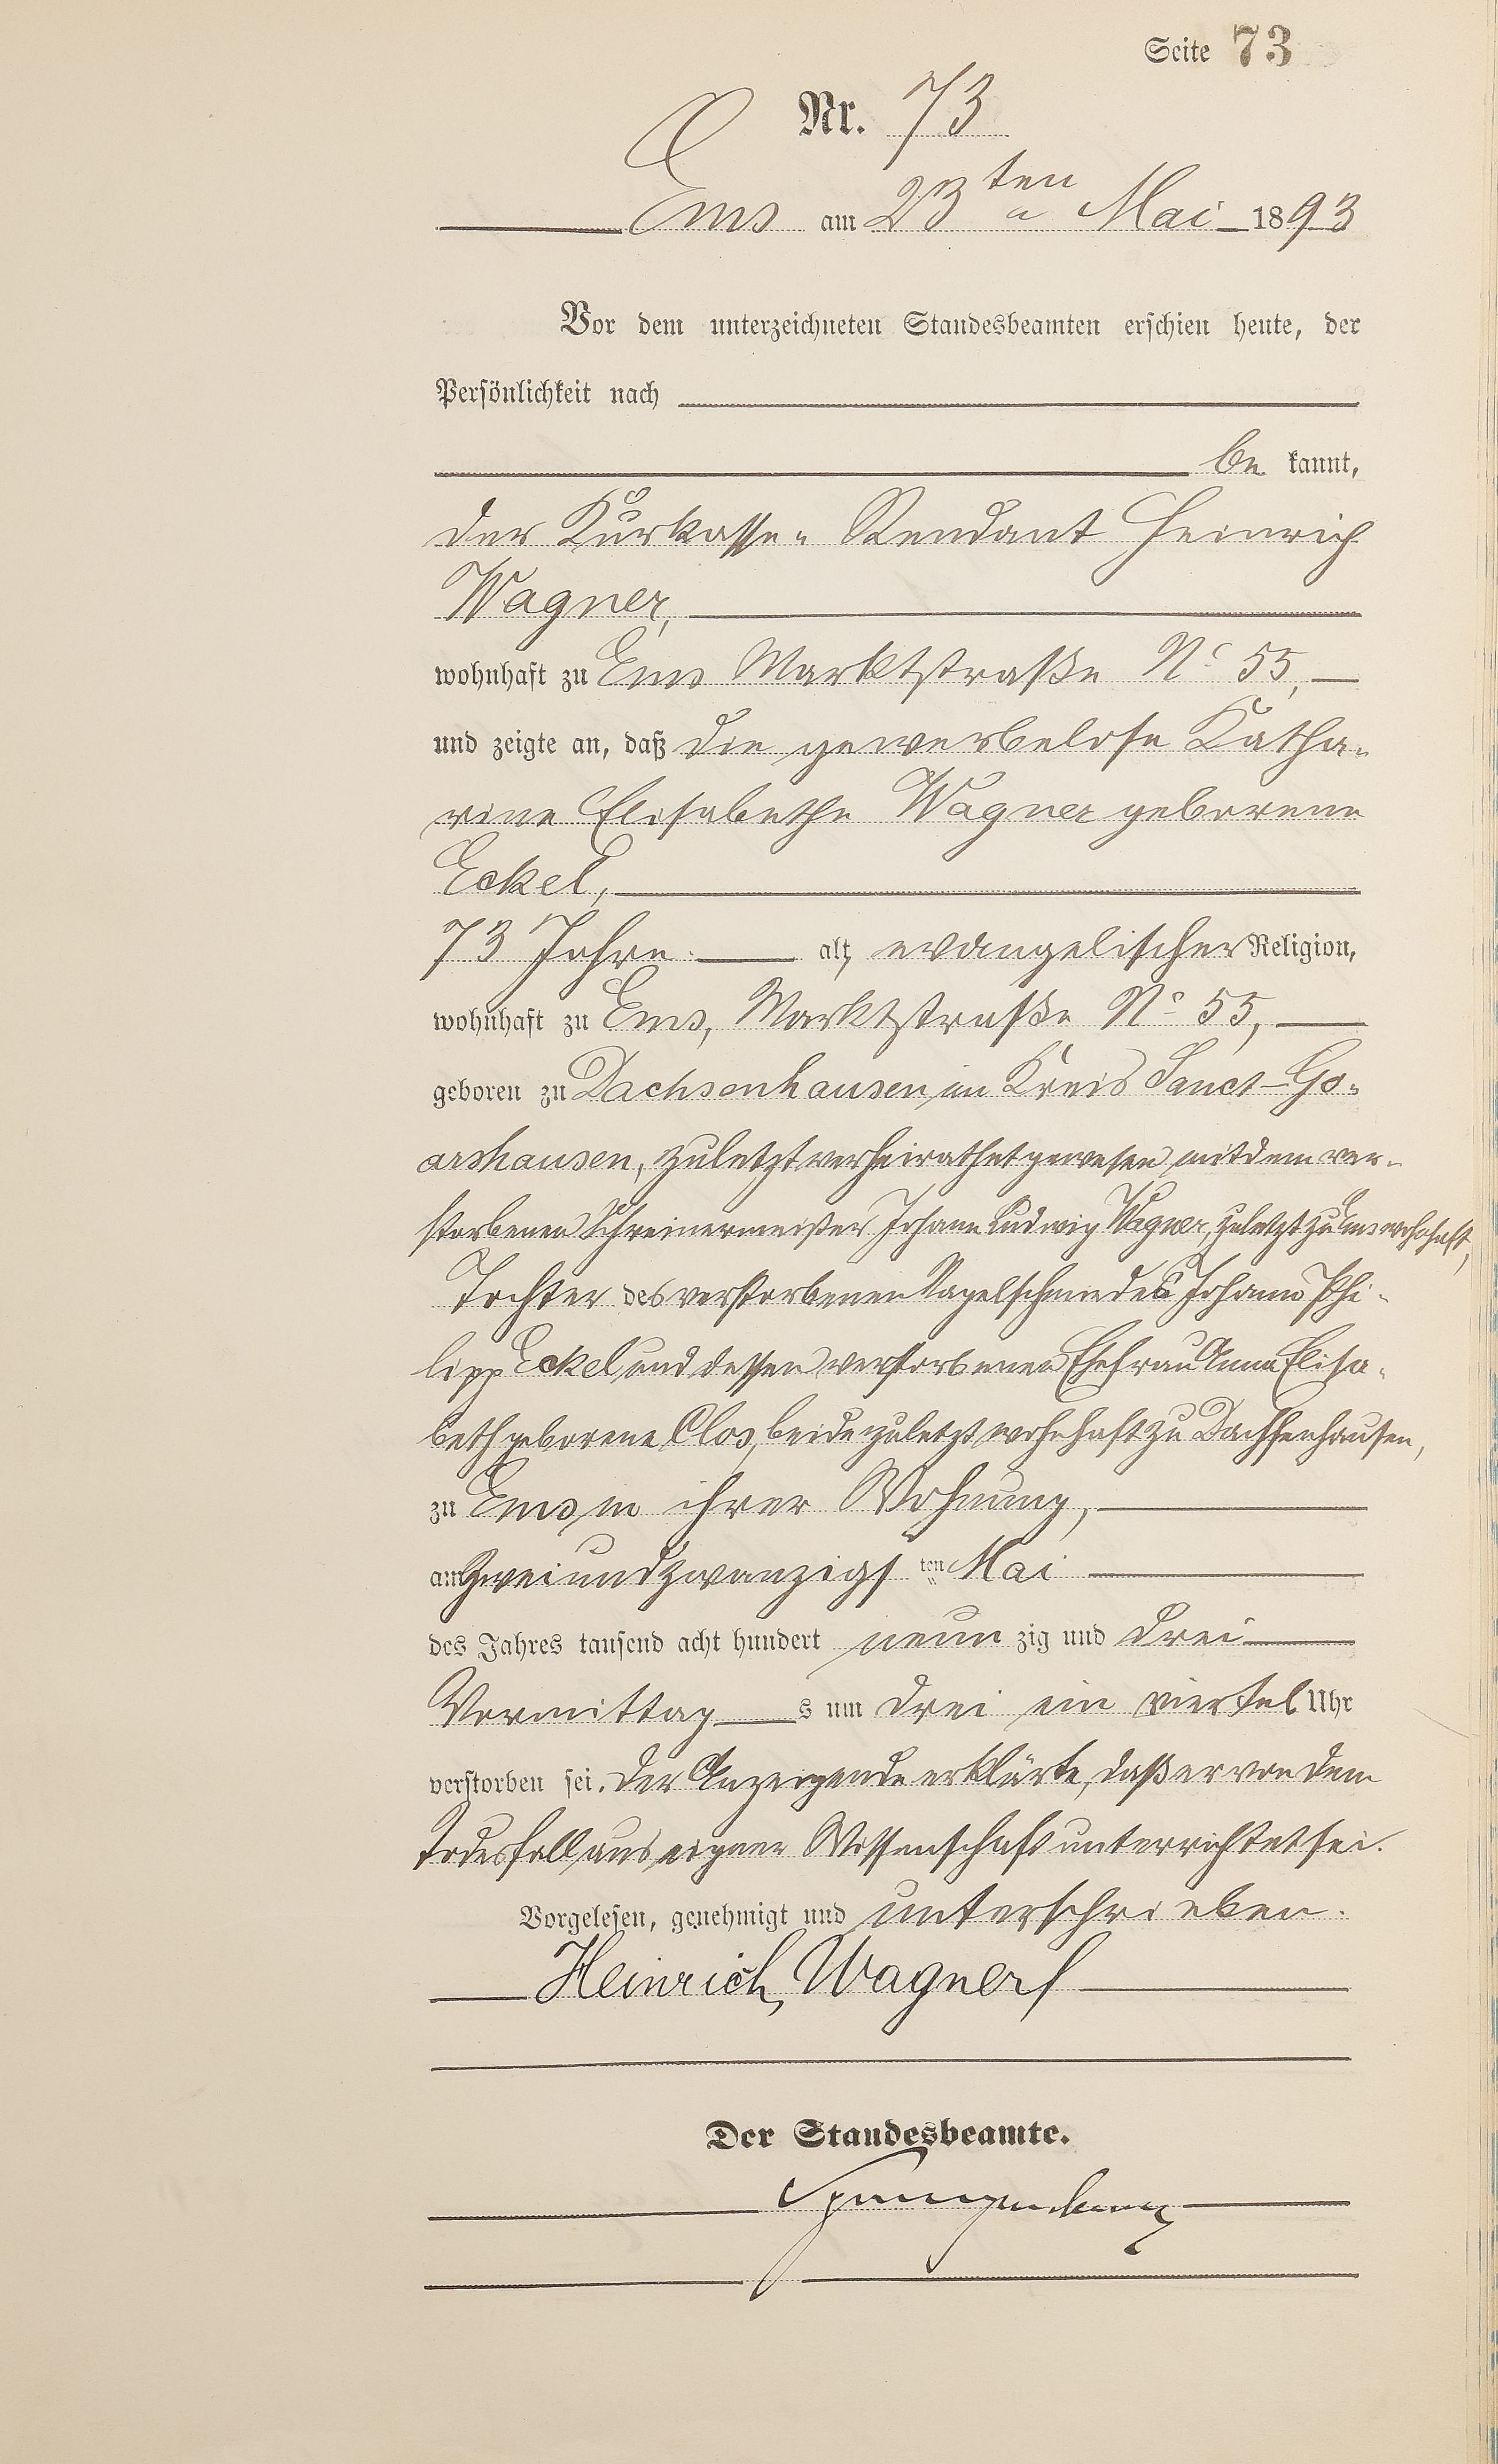 Seite 73
Nr. 73
Ems am 23ten Mai 1893
Vor dem unterzeichneten Standesbeamten erschien heute, der
Persönlichkeit nach
be kannt,
der Kurkasse-Rendant Heinrich
Wagner,
wohnhaft zu Ems Marktstraße No 55,
und zeigte an, daß die gewerbelose Katha-
rine Elisabethe Wagner geborene
Eckel,
73 Jahre alt, evangelischer Religion,
wohnhaft zu Ems, Marktstraße No 55,
geboren zu Dachsenhausen im Kreis Sanct-Go-
arshausen, zuletzt verheirathet gewesen mit dem ver-
storbenen Schreinermeister Johann Ludwig Wagner, zuletzt zu Ems wohnhaft,
Tochter des verstorbenen Nagelschmiedes Johann Phi-
lipp Eckel und dessen verstorbenen Ehefrau Anna Elisa-
beth geborene Clos, beide zuletzt wohnhaft zu Dachsenhausen,
zu Ems in ihrer Wohnung,
am zweiundzwanzigsten Mai
des Jahres tausend acht hundert neun zig und drei
Vormittag s um drei ein viertel Uhr
verstorben sei. Der Anzeigende erklärte, daß er von dem
Todesfall aus eigner Wissenschaft unterrichtet sei.
Vorgelesen, genehmigt und unterschrieben.
Heinrich Wagner
Der Standesbeamte.